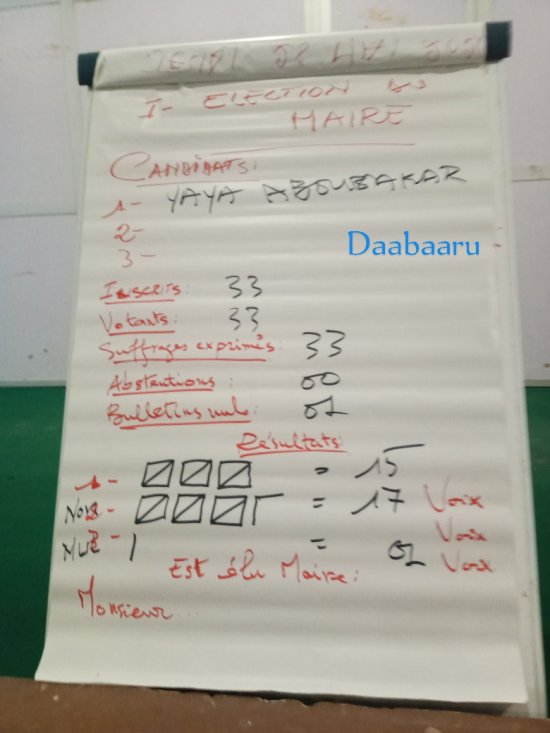 I- ELECTION DU
MAIRE
CANDIDATS:
1- YAYA ABOUBAKAR
2-
3-
Daabaaru
INSCRITS: 33
Votants: 33
Suffrages exprimés: 33
Abstentions: 00
Bulletins nuls: 01
Résultats
1- = 15
NON 2- = 17 Voix
NUL 3- = 01 Voix
Voix
Est élu Maire:
Monsieur...